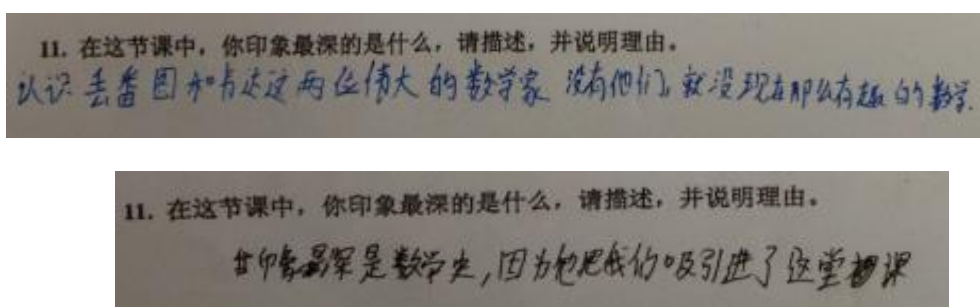 11. 在这节课中，你印象最深的是什么，请描述，并说明理由。
认识丢番图和卡达这两位伟大的数学家 没有他们，就没现在那么有趣的数学.
11. 在这节课中，你印象最深的是什么，请描述，并说明理由。
印象最深是数学史，因为他把我们吸引进了这堂课